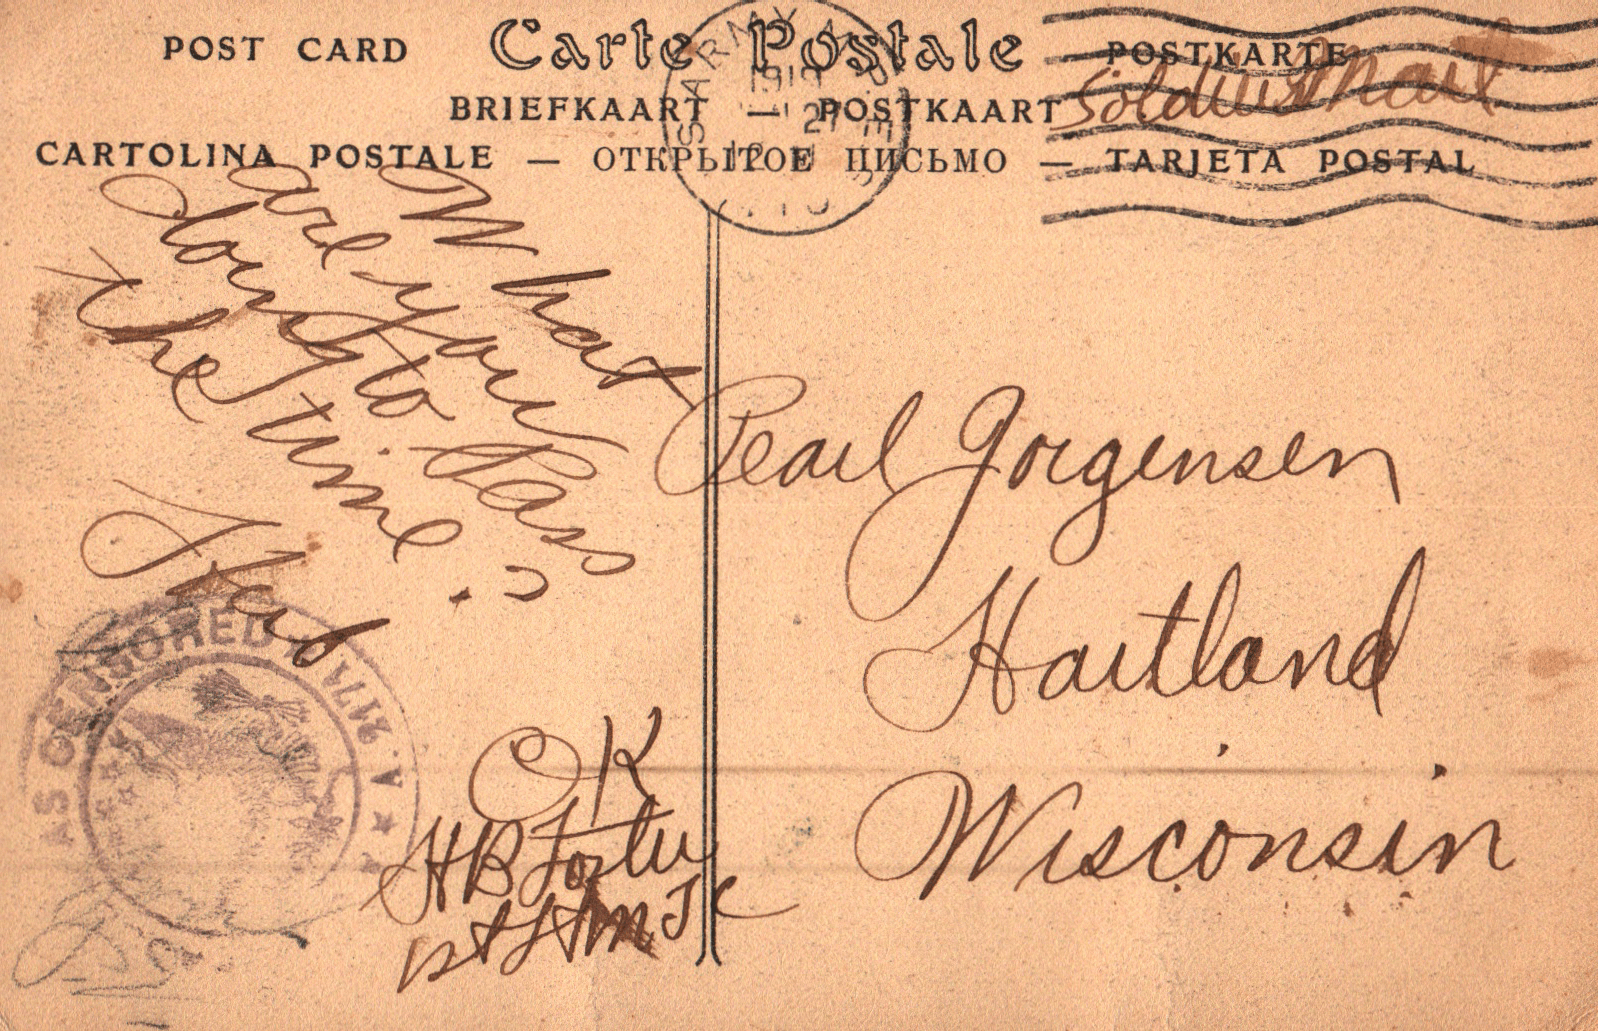 POST CARD Carte Postale POSTKARTE
Soldiers Mail
BRIEFKAART — POSTKAART
CARTOLINA POSTALE — ОТКРЫТОЕ ПИСЬМО — TARJETA POSTAL
ARMY
What
are you
doing to Pass
the time?
Herb
Pearl Jorgensen
Hartland
Wisconsin
CENSORED
A.
AS
OK
HB Foster
1st Lt